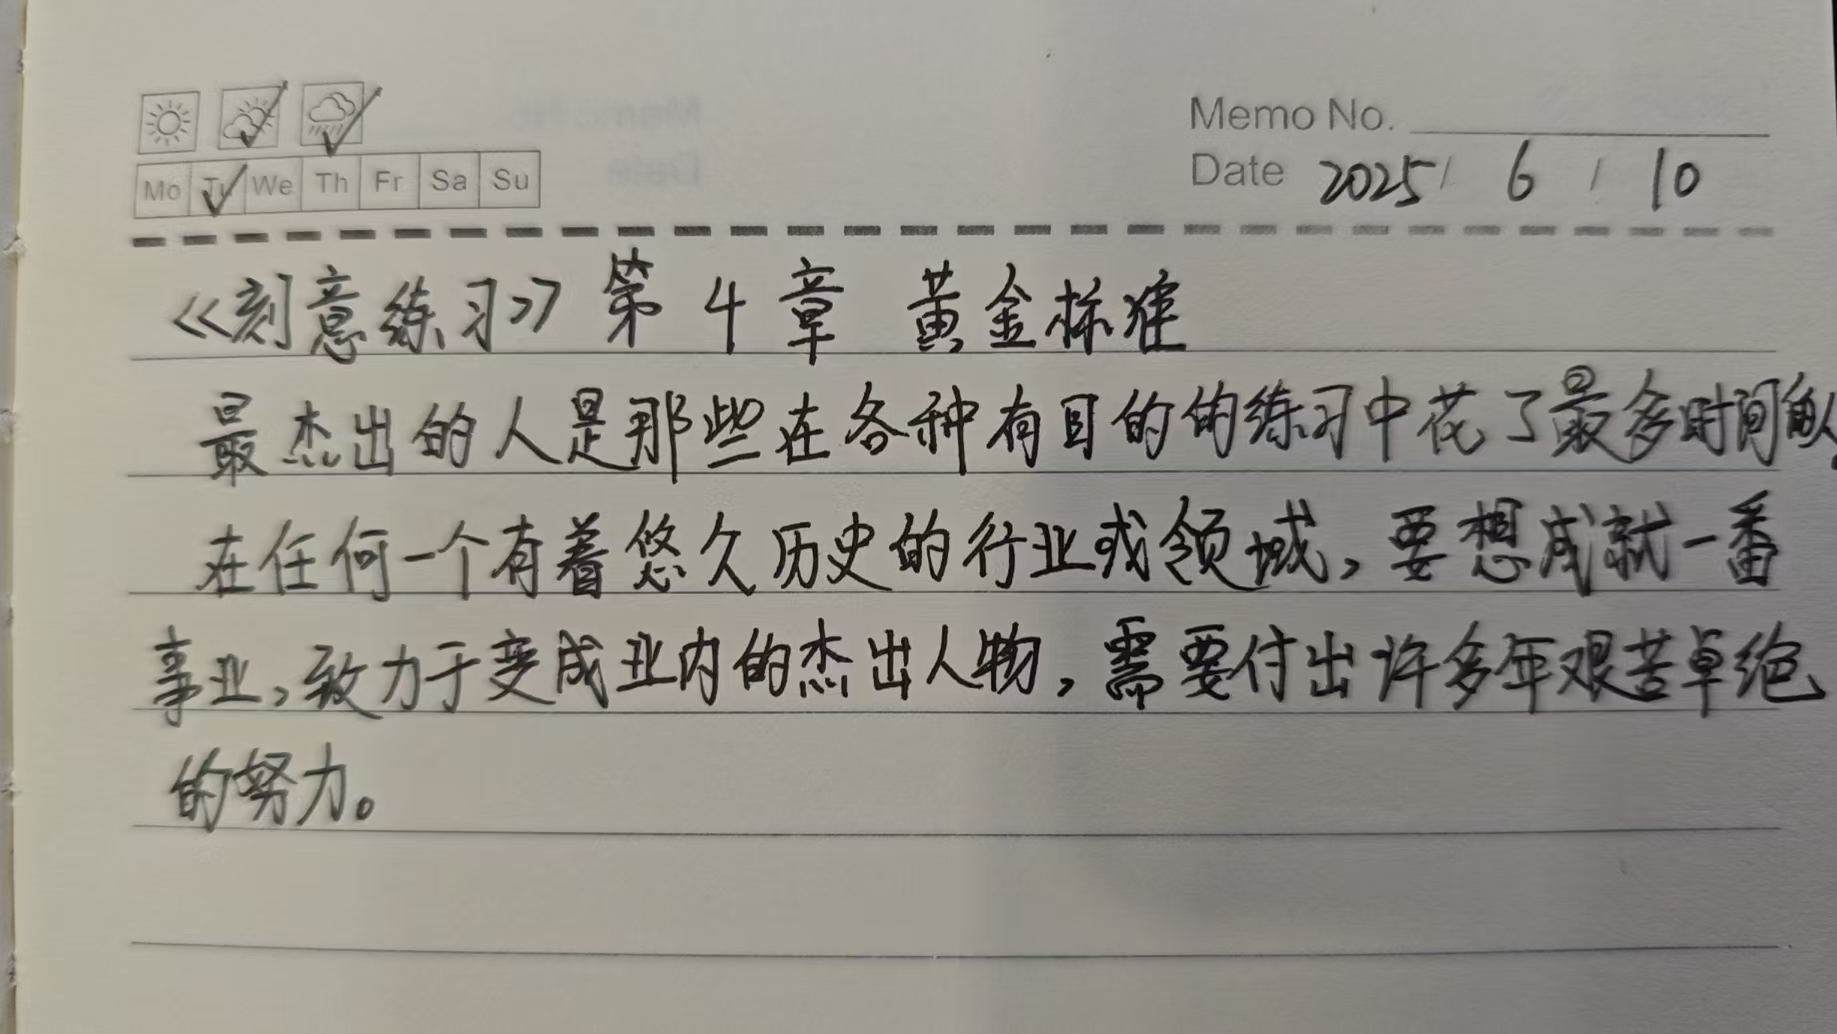 Memo No.
Mo Tu We Th Fr Sa Su
Date 2025 / 6 / 10
《刻意练习》 第 4 章 黄金标准
最杰出的人是那些在各种有目的的练习中花了最多时间的人。
在任何一个有着悠久历史的行业或领域，要想成就一番
事业，致力于变成业内的杰出人物，需要付出许多年艰苦卓绝
的努力。